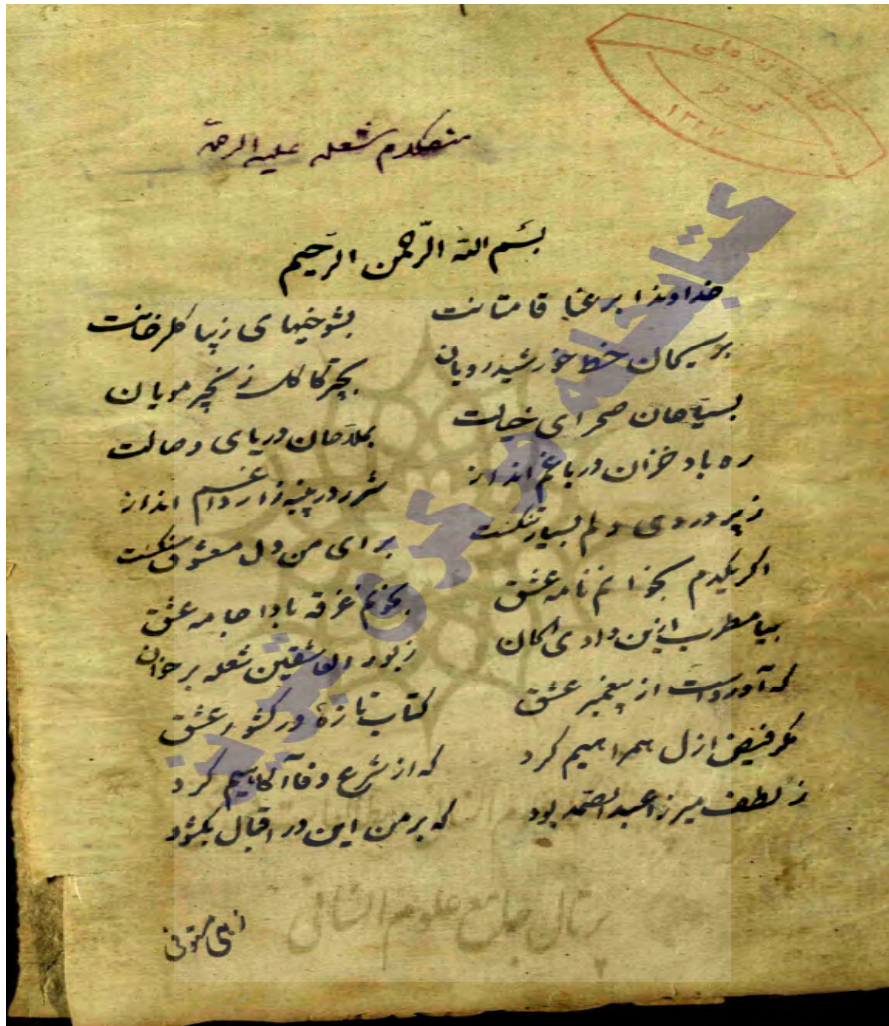 کتابخانه ملی
تبریز
۱۳۲۷
شعله علیه الرحمه
بسم الله الرّحمن الرّحیم
خداوندا برعنا قامتانت بشوخیهای زیبا گلرخانت
خط خورشیدرویان مویان
بسیاحان صحرای خیالت بملاحان دریای وصالت
ره باد خزان در باغم انداز شرر در پنبه‌زار داغم انداز
ز پر دردی دلم بسیار تنگست برای من دل معشوق سنگست
اگر یکدم بخوانم نامه عشق بخونم غرقه بادا جامه عشق
بیا مطرب ازین وادی زبور العاشقین شعله برخوان
که آوردست از پیغمبر عشق کتاب تازهٔ در کشور عشق
مگر فیض ازل همراهیم کرد که از شرع وفا آگاهیم کرد
ز لطف میرزا عبدالصمد بود که بر من این در اقبال بگشود
کتابخانه مرکزی تبریز
پرتال جامع علوم انسانی